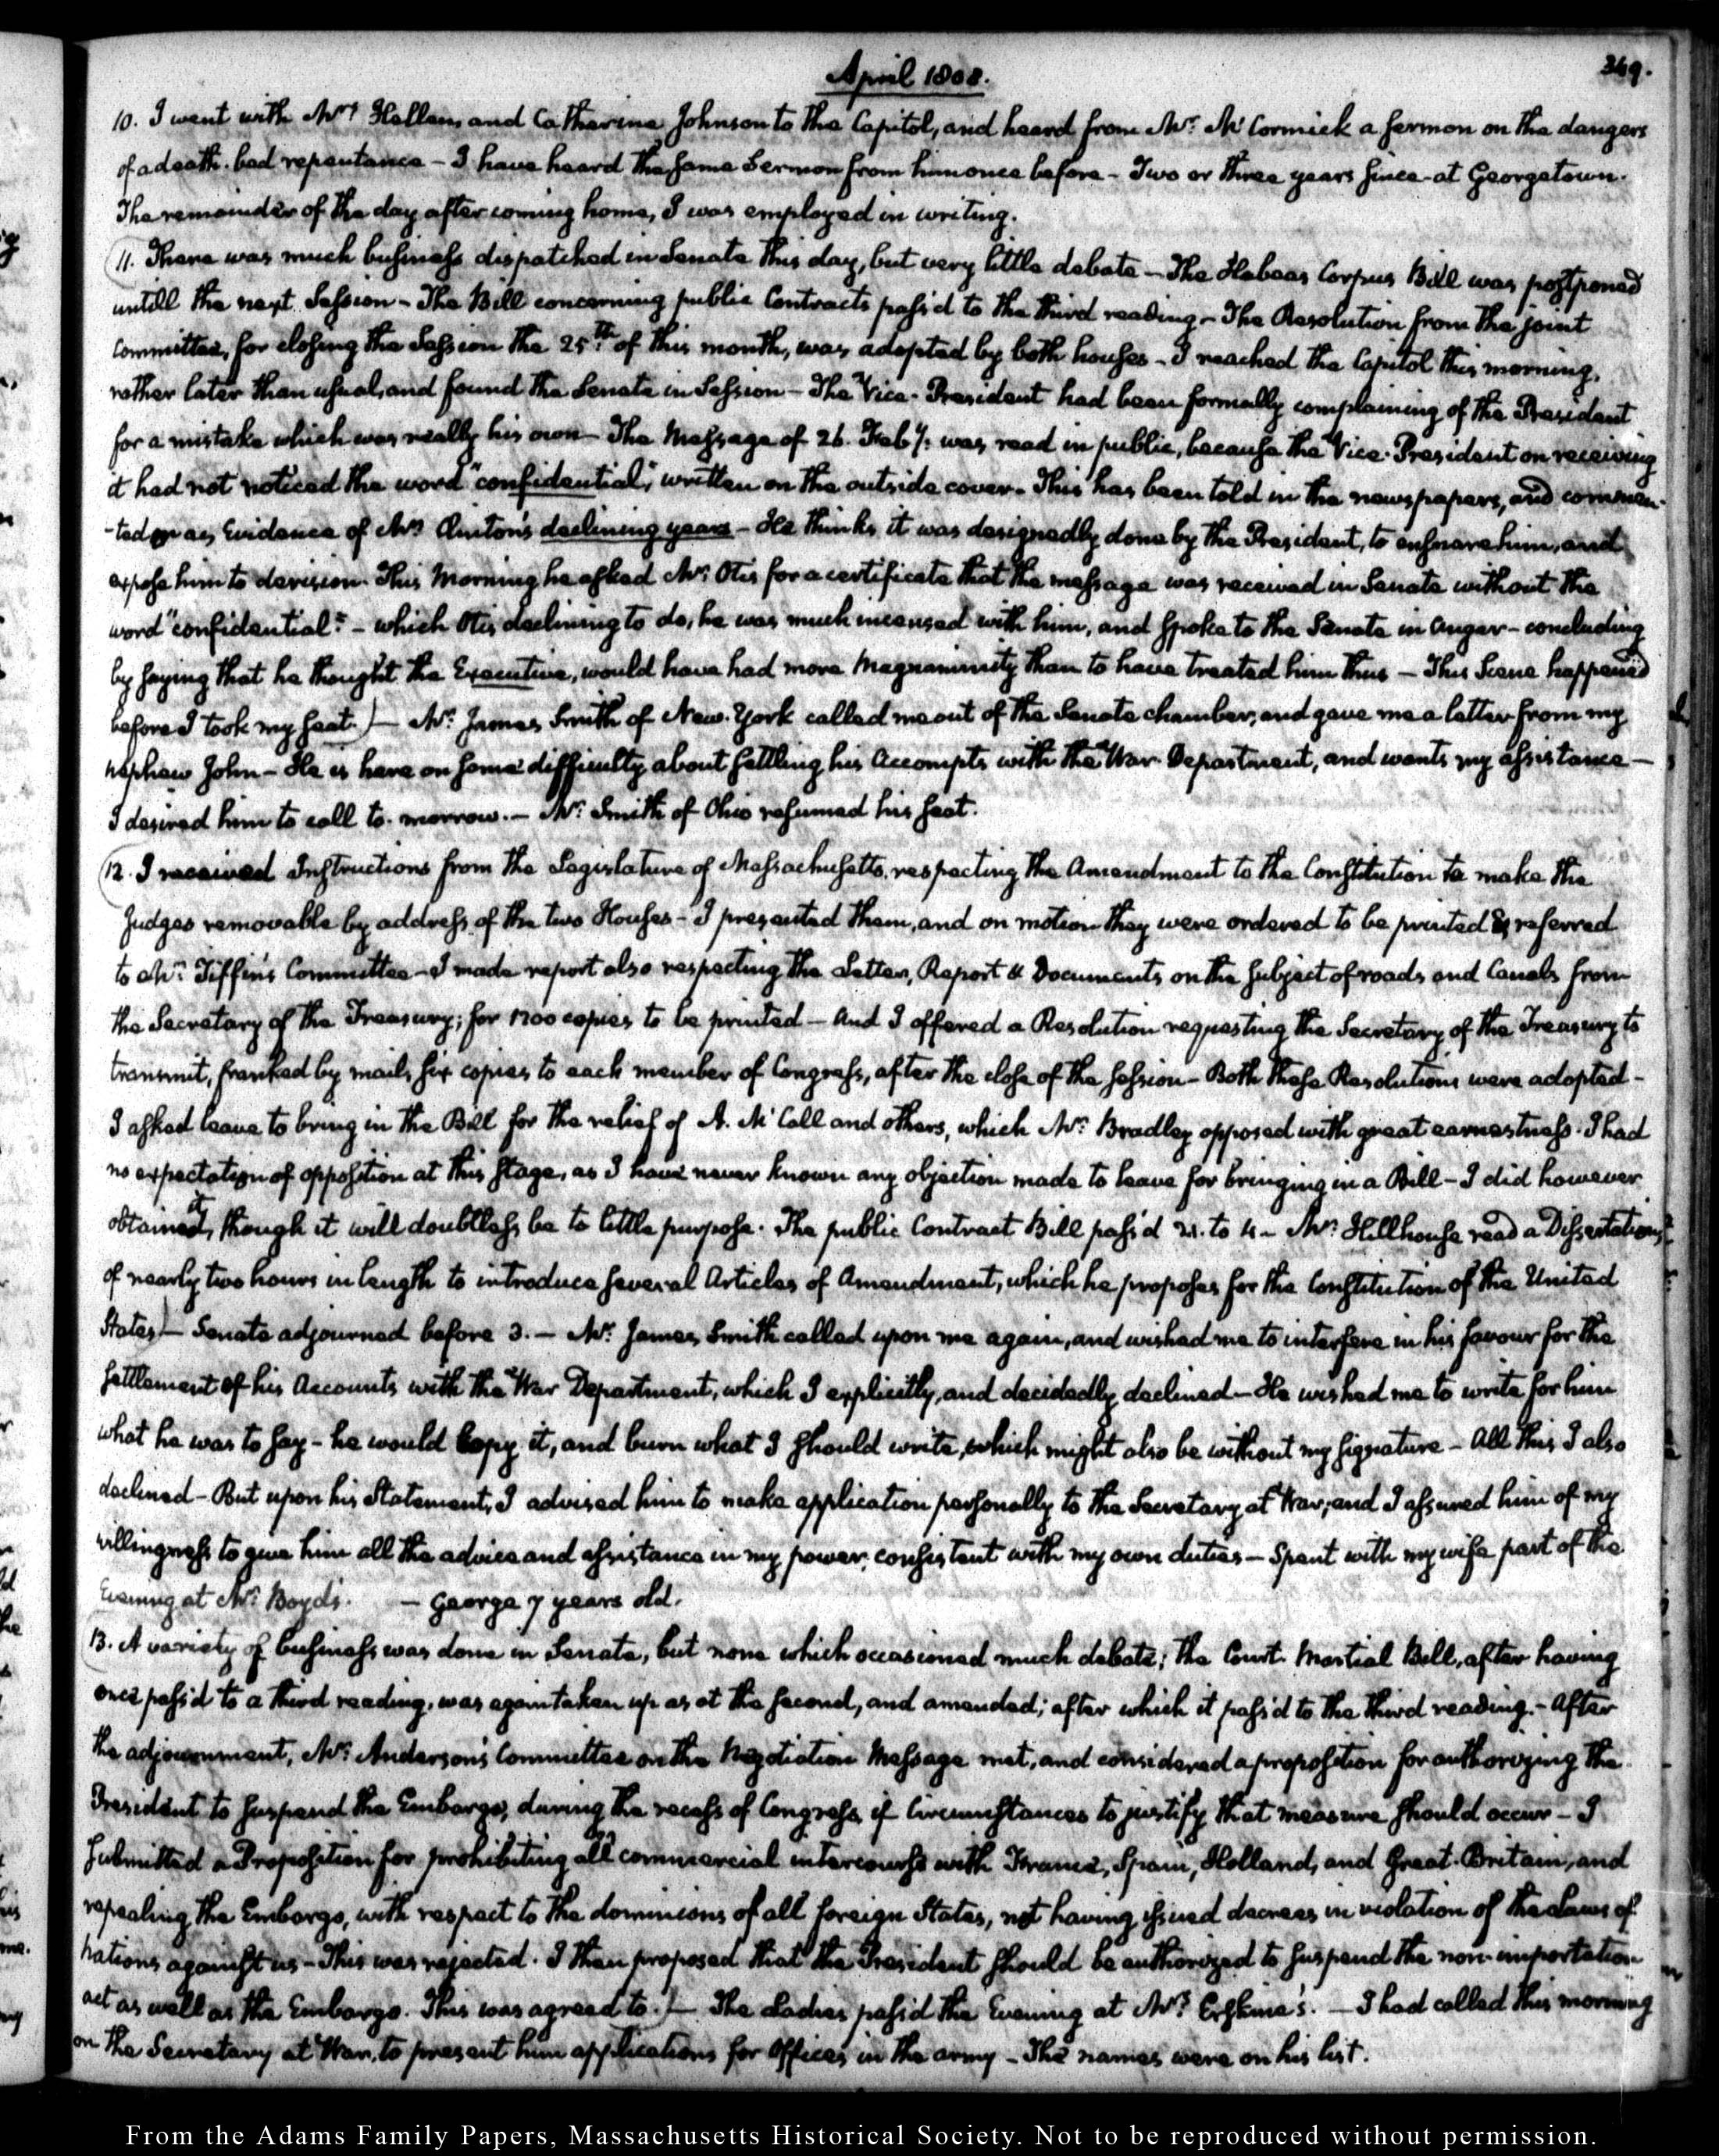 April 1808.
349.
10. I went with Mrs. Hellen, and Catherine Johnson to the Capitol, and heard from Mr. McCormick a sermon on the dangers
of a death-bed repentance – I have heard the same Sermon from him once before – Two or three years since at Georgetown.
The remainder of the day after coming home, I was employed in writing.
11. There was much business dispatched in Senate this day, but very little debate – The Habeas Corpus Bill was postponed
untill the next Session – The Bill concerning public Contracts pass'd to the third reading – The Resolution from the joint
Committee, for closing the Session the 25th. of this month, was adopted by both houses – I reached the Capitol this morning,
rather later than usual, and found the Senate in Session – The Vice-President had been formally complaining of the President
for a mistake which was really his own – The Message of 26. Feby. was read in public, because the Vice-President on receiving
it had not noticed the word "confidential," written on the outside cover – This has been told in the newspapers, and commen-
-ted on as Evidence of Mr. Clinton's declining years – He thinks it was designedly done by the President, to ensnare him, and
expose him to derision. This Morning he asked Mr. Otis for a certificate that the message was received in Senate without the
word "confidential" – which Otis declining to do, he was much incensed with him, and spoke to the Senate in anger – concluding
by saying that he thought the Executive, would have had more Magnanimity than to have treated him thus – This Scene happened
before I took my seat.) – Mr. James Smith of New-York called me out of the Senate chamber, and gave me a letter from my
nephew John – He is here on some difficulty about settling his Accompts with the War Department, and wants my assistance –
I desired him to call to-morrow. – Mr. Smith of Ohio resumed his seat.
12. I received Instructions from the Legislature of Massachusetts, respecting the Amendment to the Constitution to make the
Judges removable by address of the two Houses – I presented them, and on motion they were ordered to be printed & referred
to Mr. Tiffin's Committee – I made report also respecting the Letter, Report & Documents on the subject of roads and Canals from
the Secretary of the Treasury; for 1200 copies to be printed – And I offered a Resolution requesting the Secretary of the Treasury to
transmit, franked by mail, six copies to each member of Congress, after the close of the session – Both these Resolutions were adopted –
I asked leave to bring in the Bill for the relief of A. McCall and others, which Mr. Bradley opposed with great earnestness. I had
no expectation of opposition at this stage, as I have never known any objection made to leave for bringing in a Bill – I did however
obtained it, though it will doubtless be to little purpose. The public Contract Bill pass'd 21. to 4 – Mr. Hillhouse read a Dissertation,
of nearly two hours in length to introduce several Articles of Amendment, which he proposes for the Constitution of the United
States) – Senate adjourned before 3. – Mr. James Smith called upon me again, and wished me to interfere in his favour for the
settlement of his Accounts with the War Department, which I explicitly, and decidedly declined – He wished me to write for him
what he was to say – he would copy it, and burn what I should write, which might also be without my signature – All this I also
declined – But upon his Statement, I advised him to make application personally to the Secretary at War, and I assured him of my
willingness to give him all the advice and assistance in my power, consistent with my own duties – Spent with my wife part of the
Evening at Mr. Boyd's. – George 7 years old.
13. A variety of business was done in Senate, but none which occasioned much debate; the Court-Martial Bill, after having
once pass'd to a third reading, was again taken up as at the second, and amended; after which it pass'd to the third reading. – After
the adjournment, Mr. Anderson's Committee on the Negotiation Message met, and considered a proposition for authorizing the
President to suspend the Embargo, during the recess of Congress, if Circumstances to justify that measure should occur – I
submitted a Proposition for prohibiting all commercial intercourse with France, Spain, Holland, and Great-Britain, and
repealing the Embargo, with respect to the dominions of all foreign States, not having issued decrees in violation of the Laws of
nations against us – This was rejected. I then proposed that the President should be authorized to suspend the non-importation
act as well as the Embargo. This was agreed to.) – The Ladies pass'd the Evening at Mrs. Erskine's. – I had called this morning
on the Secretary at War, to present him applications for Offices in the army – The names were on his list.
From the Adams Family Papers, Massachusetts Historical Society. Not to be reproduced without permission.